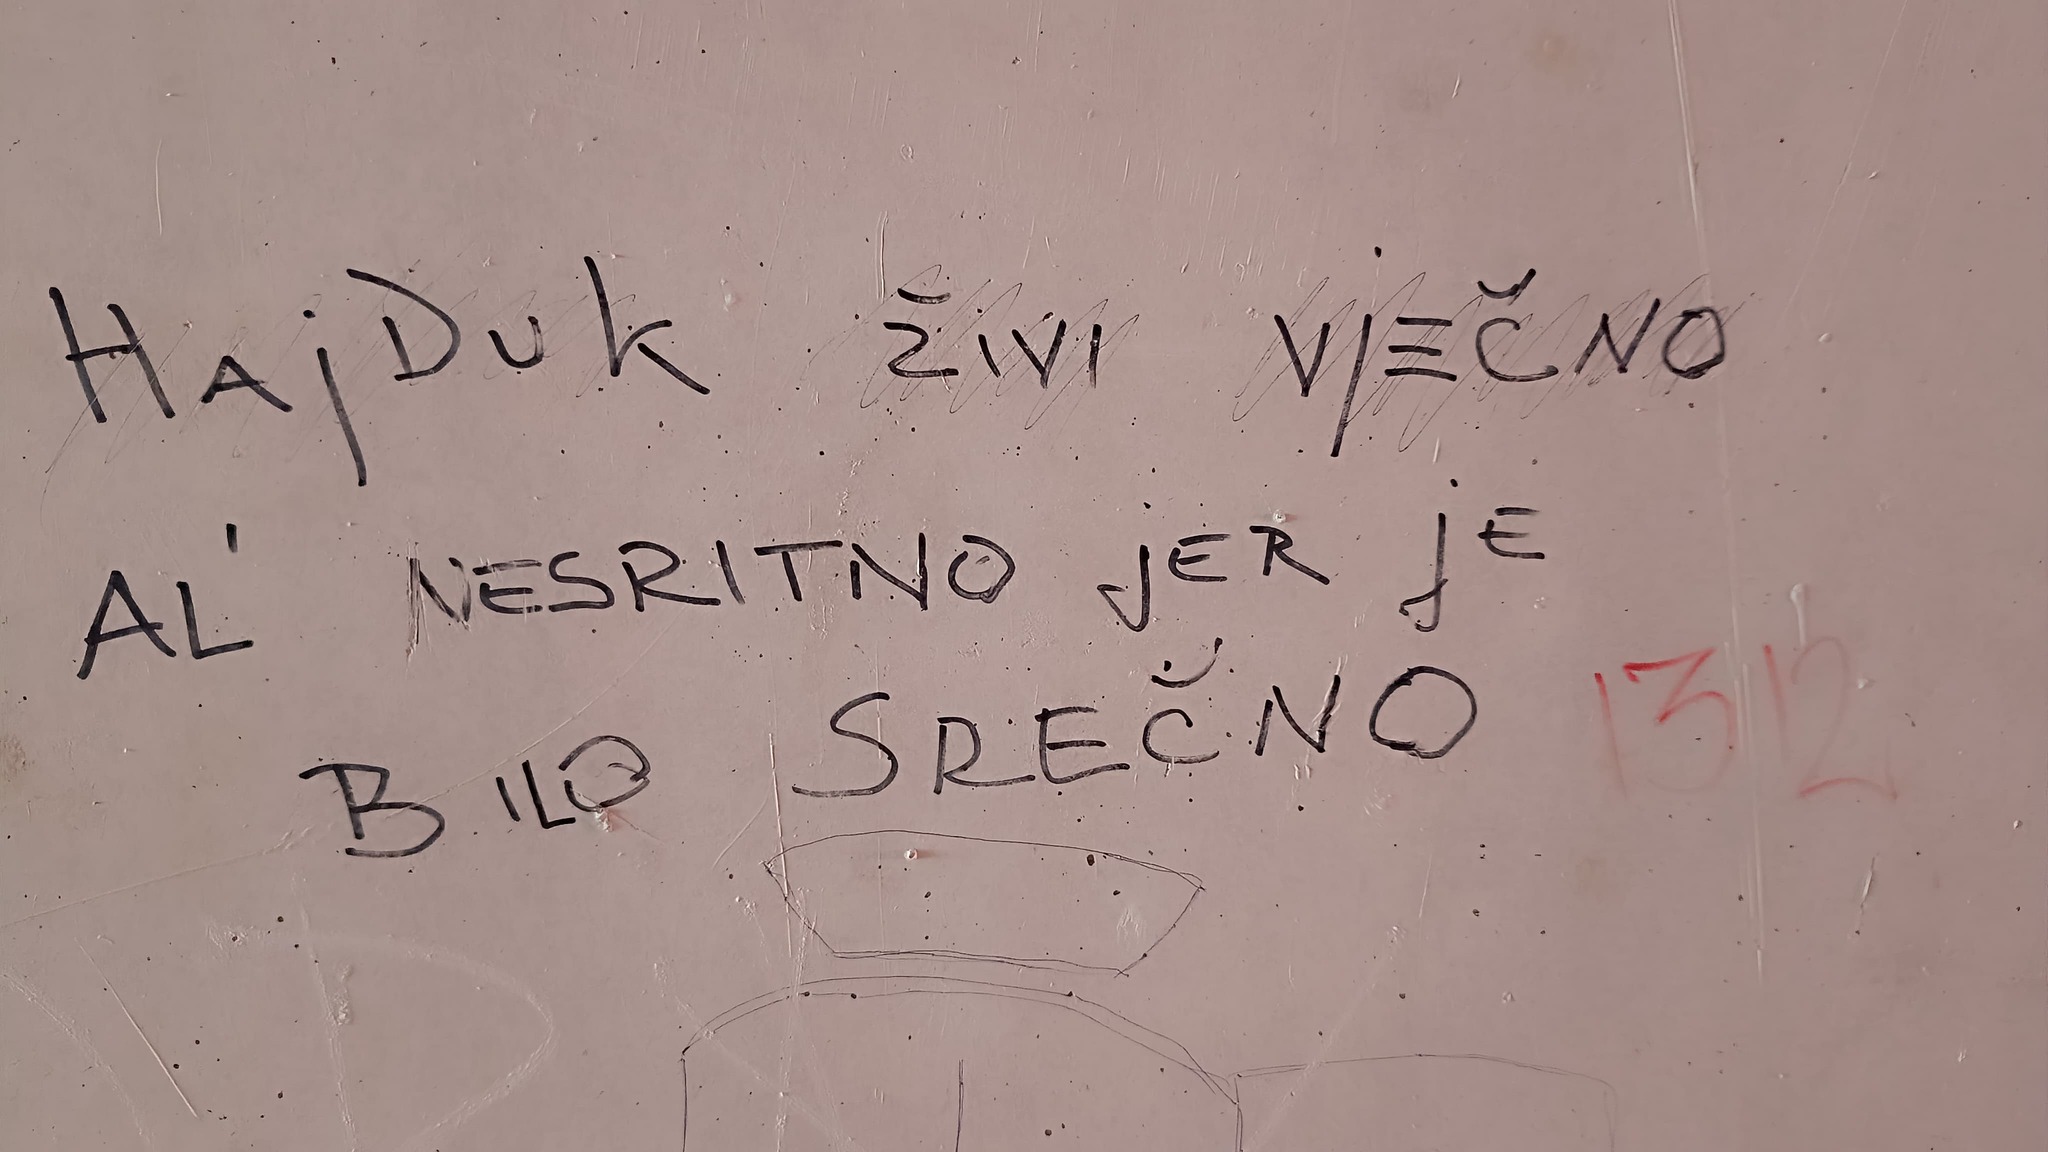 HAjDuk ŽIVI VjEČNO
AL' NESRITNO jER jE
BILO SREČNO
1312